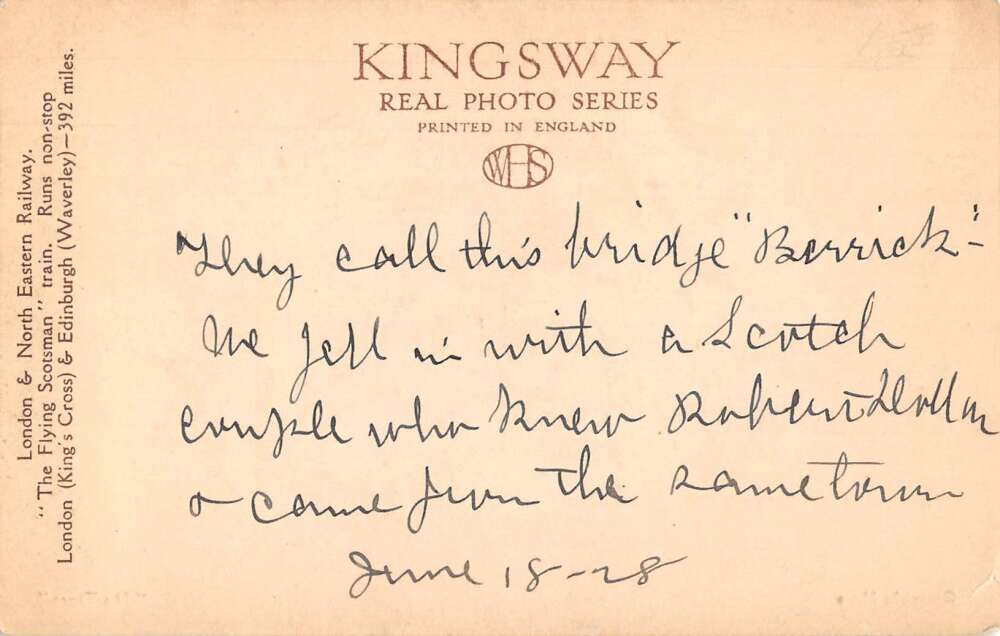 KINGSWAY
REAL PHOTO SERIES
PRINTED IN ENGLAND
WHS
London & North Eastern Railway.
"The Flying Scotsman" train. Runs non-stop
London (King's Cross) & Edinburgh (Waverley)—392 miles.
They call this bridge "Berrick"-
We fell in with a Scotch
couple who knew Robert Dollar
& came from the same town
June 18-28